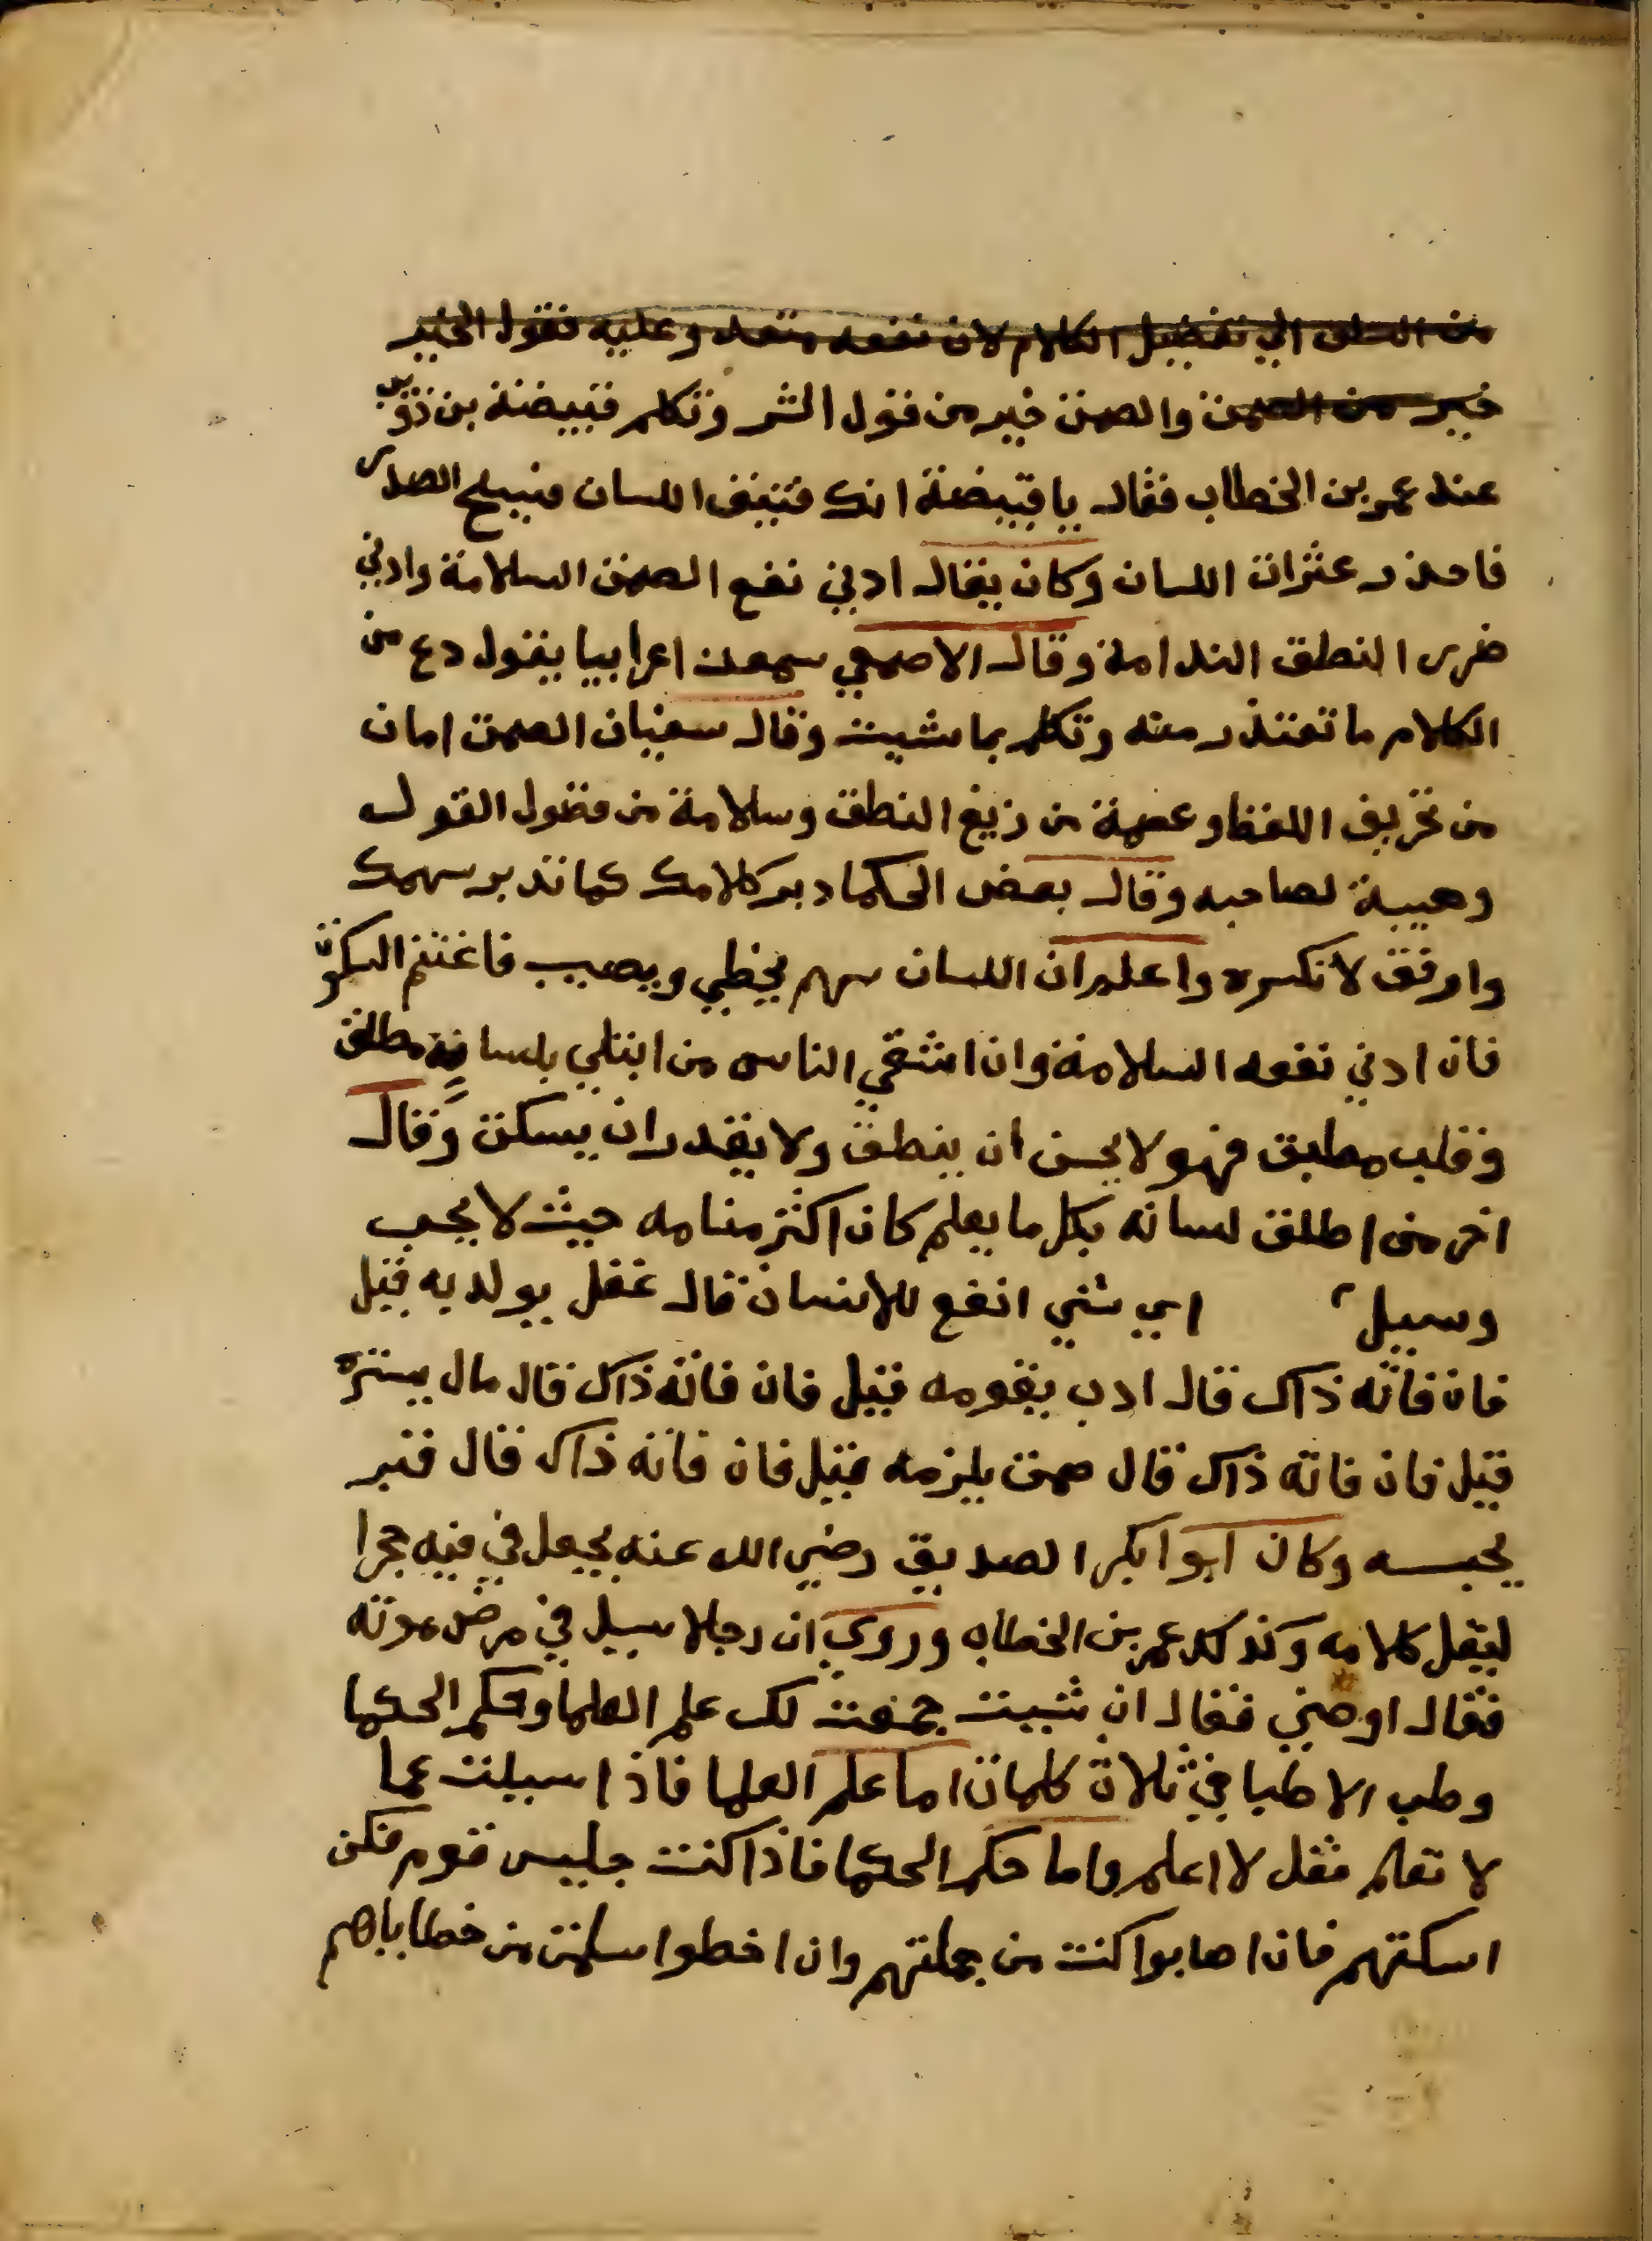 من السلف الي تفضيل الكلام لان نفعه متعد وعليه فقول الخير
خير من الصمت والصمت خير من قول الشر وتكلم قبيصة بن ذؤيب
عند عمر بن الخطاب فقال يا قبيضة انك فتيق اللسان فسيح الصدر
فاحذر عثرات اللسان وكان يقال ادني نفع الصمت السلامة وادني
ضرر النطق الندامة وقال الاصمعي سمعت اعرابيا يقول دع من
الكلام ما تعتذر منه وتكلم بما شيت وقال سفيان الصمت امان
من تحريف اللفظ وعصمة من زيغ النطق وسلامة من فضول القول
وهيبة لصاحبه وقال بعض الحكما دبر كلامك كما تدبر سهمك
وارفق لا تكسره واعلم ان اللسان سهم يخطي ويصيب فاغتنم السكوت
فان ادني نفعه السلامة وان اشقي الناس من ابتلي بلسانه مطلق
وقلب مطبق فهو لا يحسن ان ينطق ولا يقدر ان يسكت وقال
اخر من اطلق لسانه بكل ما يعلم كان اكثر منامه حيث لا يحب
وسيل اي شي انفع للانسان قال عقل يولد به قيل
فان فاته ذاك قال ادب يقومه قيل فان فاته ذاك قال مال يستره
قيل فان فاته ذاك قال صمت يلزمه قيل فان فاته ذاك قال قبر
يحبسه وكان ابوا بكر الصديق رضي الله عنه يجعل في فيه حجرا
ليقل كلامه وكذلك عمر بن الخطاب وروي ان رجلا سيل في مرض موته
فقال اوصني فقال ان شيت جمعت لك علم العلما وحكم الحكما
وطب الاطبا في ثلاث كلمات اما علم العلما فاذا سيلت عما
لا تعلم فقل لا اعلم واما حكم الحكما فاذا كنت جليس قوم فكن
اسكتهم فان اصابوا كنت من جملتهم وان اخطوا سلمت من خطاياهم